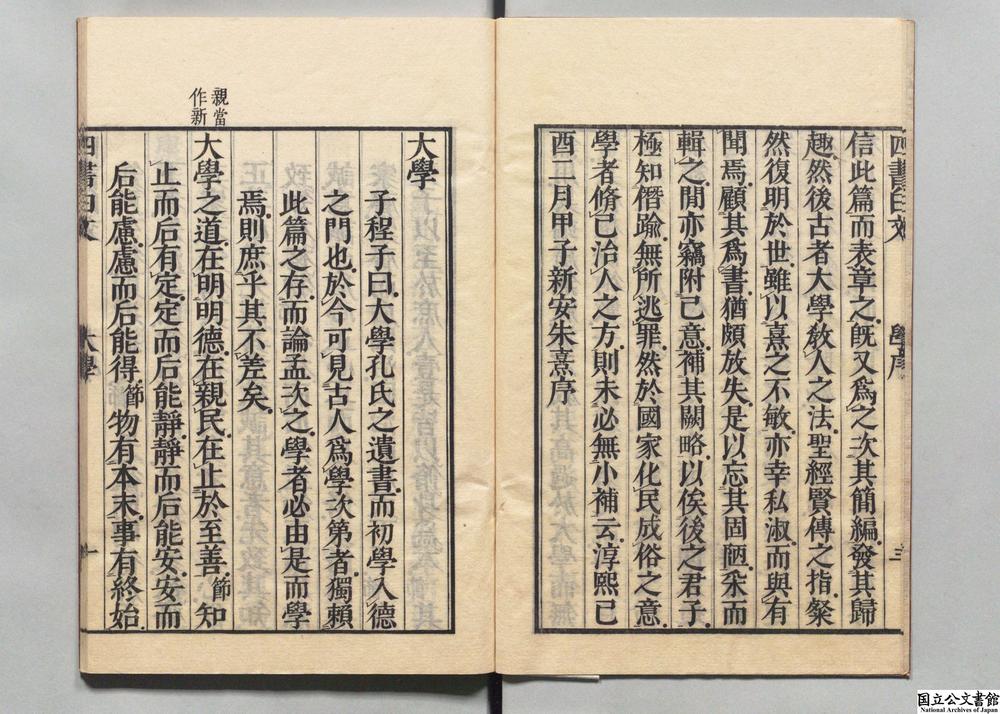 四書白文
學序
三
信此篇而表章之。既又爲之次其簡編。發其歸
趣。然後古者大學敎人之法。聖經賢傳之指。粲
然復明於世。雖以熹之不敏。亦幸私淑。而與有
聞焉。顧其爲書。猶頗放失。是以忘其固陋。采而
輯之。閒亦竊附己意。補其闕略。以俟後之君子。
極知僭踰。無所逃罪。然於國家化民成俗之意。
學者脩己治人之方。則未必無小補云。淳熙己
酉二月甲子新安朱熹序
大學
子程子曰。大學孔氏之遺書。而初學入德
之門也。於今可見古人爲學次第者。獨賴
此篇之存。而論孟次之。學者必由是而學
焉。則庶乎其不差矣。
親當
作新
大學之道。在明明德。在親民。在止於至善。節知
止而后有定。定而后能靜。靜而后能安。安而
后能慮。慮而后能得。節物有本末。事有終始。
四書白文
大學
一
国立公文書館
National Archives of Japan